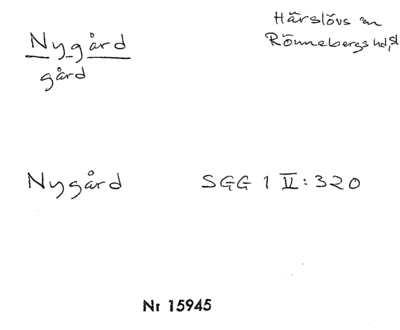 Nygård
gård
Härslövs sn
Rönnebergs hd, 
Nygård SGG 1 II:320
Nr 15945